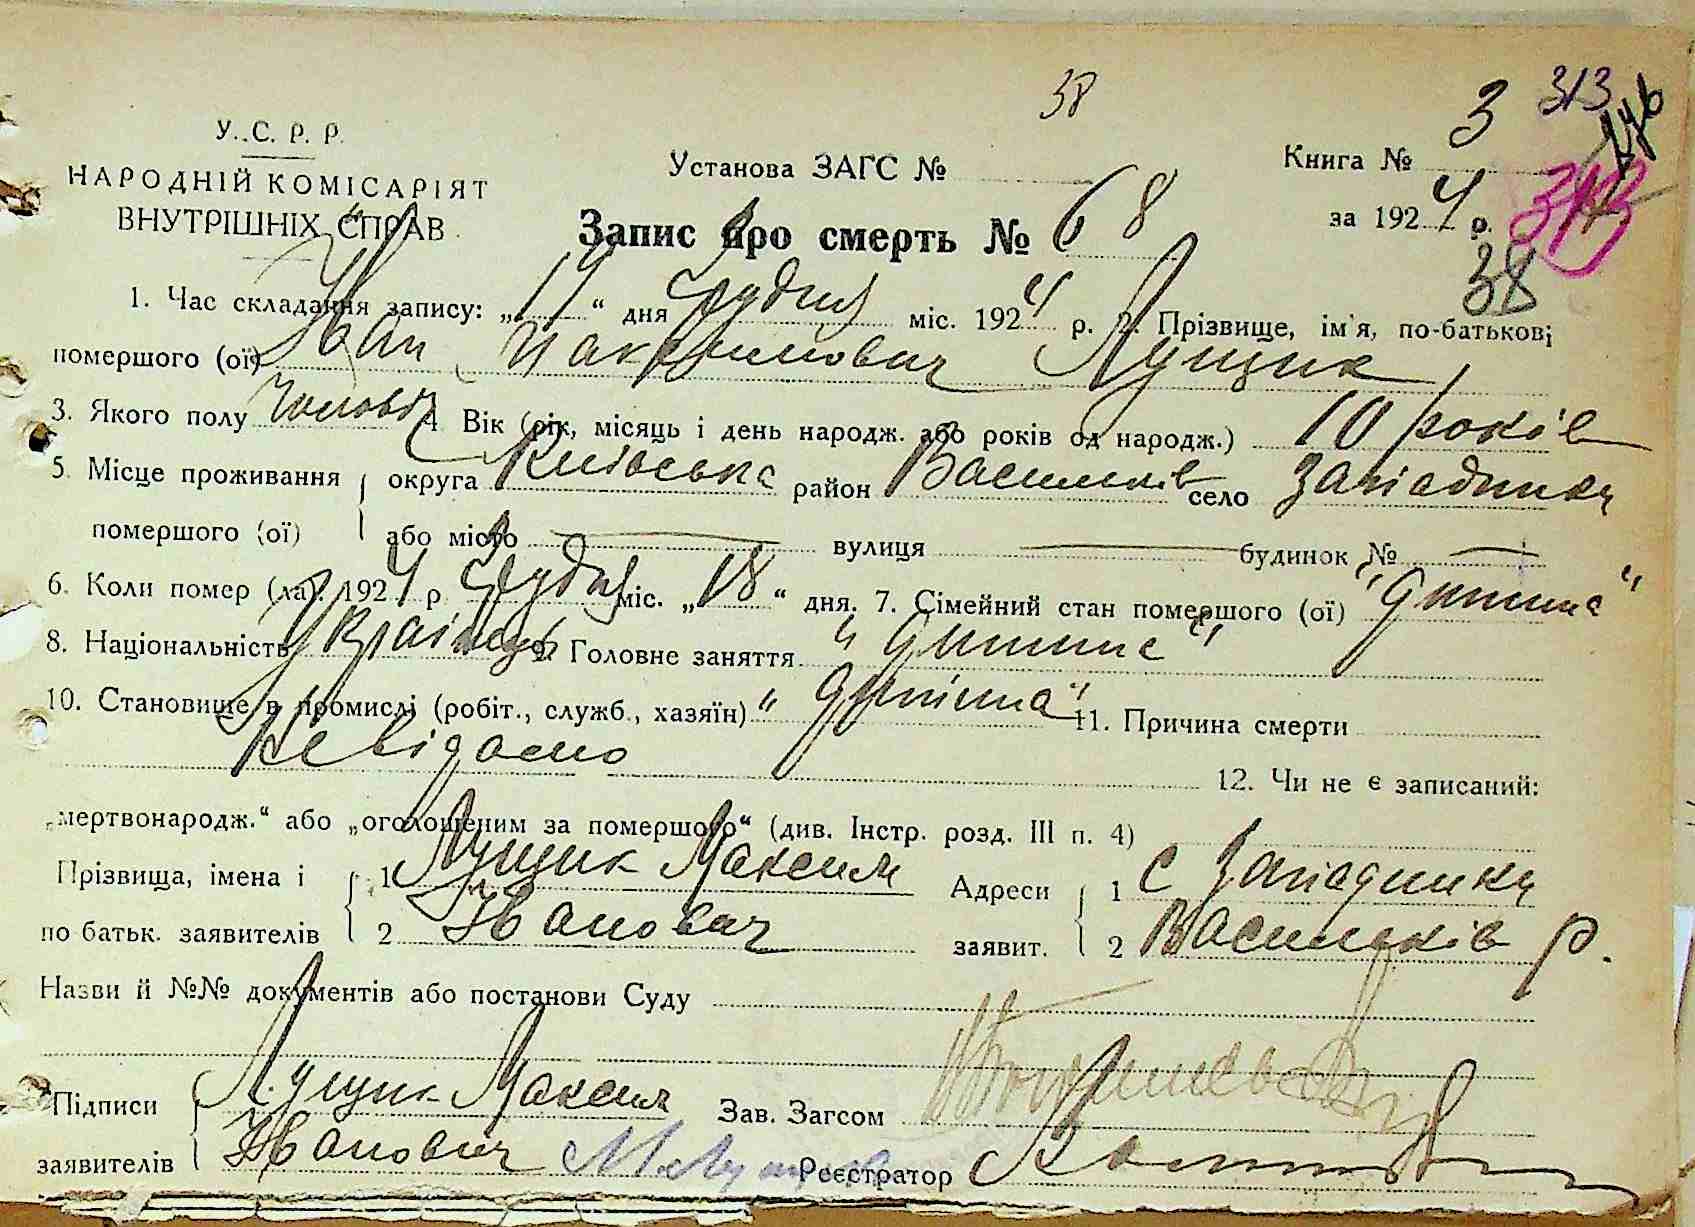 38
3
313
176
313
У. С. Р. Р.
НАРОДНІЙ КОМІСАРІЯТ
ВНУТРІШНІХ СПРАВ
Установа ЗАГС №
Книга №
за 1924 р.
38
Запис про смерть № 68
1. Час складання запису: „19“ дня Грудня міс. 1924 р. 2. Прізвище, ім'я, по-батькові
помершого (ої) Іван Максимович Лущик
3. Якого полу Чоловіч 4 Вік (рік, місяць і день народж. або років од народж.) 10 років
5. Місце проживання округа Київська район Васильків село Западинка
помершого (ої) або місто — вулиця — будинок № —
6. Коли помер (ла). 1924 р Грудня міс. „18“ дня. 7. Сімейний стан помершого (ої) "Дитина"
8. Національність Українець 9. Головне заняття "Дитина"
10. Становище в промислі (робіт., служб., хазяїн) "Дитина" 11. Причина смерти
Невідомо 12. Чи не є записаний:
„мертвонародж.“ або „оголошеним за помершого“ (див. Інстр. розд. III п. 4)
Прізвища, імена і 1 Лущик Максим Адреси 1 с Западинка
по батьк. заявителів 2 Іванович заявит. 2 Васильків р.
Назви й №№ документів або постанови Суду
Підписи Лущик Максим Зав. Загсом
заявителів Іванович Реєстратор